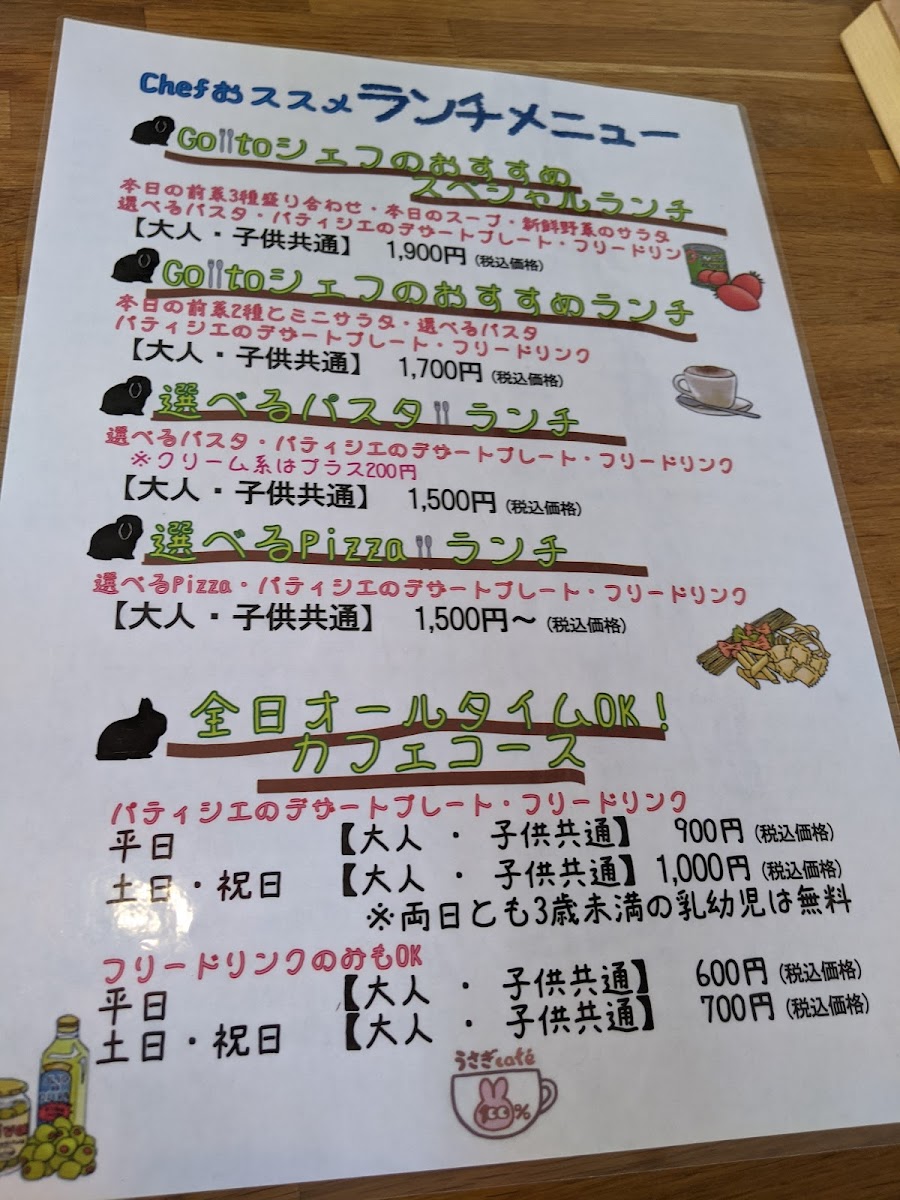 Chefおススメランチメニュー
Go toシェフのおすすめ
スペシャルランチ
本日の前菜3種盛り合わせ・本日のスープ・新鮮野菜のサラタ
選べるパスタ・パティシエのデザートプレート・フリードリン
【大人・子供共通】 1,900円(税込価格)
Go toシェフのおすすめランチ
本日の前菜2種とミニサラタ・選べるパスタ
パティシエのデザートプレート・フリードリンク
【大人・子供共通】 1,700円(税込価格)
選べるパスタランチ
選べるパスタ・パティシエのデザートプレート・フリードリンク
※クリーム系はプラス200円
【大人・子供共通】 1,500円(税込価格)
選べるPizzaランチ
選べるPizza・パティシエのデザートプレート・フリードリンク
【大人・子供共通】 1,500円～(税込価格)
全日オールタイムOK!
カフェコース
パティシエのデザートプレート・フリードリンク
平日 【大人・子供共通】 900円(税込価格)
土日・祝日 【大人・子供共通】 1,000円(税込価格)
※両日とも3歳未満の乳幼児は無料
フリードリンクのみもOK
平日 【大人・子供共通】 600円(税込価格)
土日・祝日 【大人・子供共通】 700円(税込価格)
うさぎcafé
100%